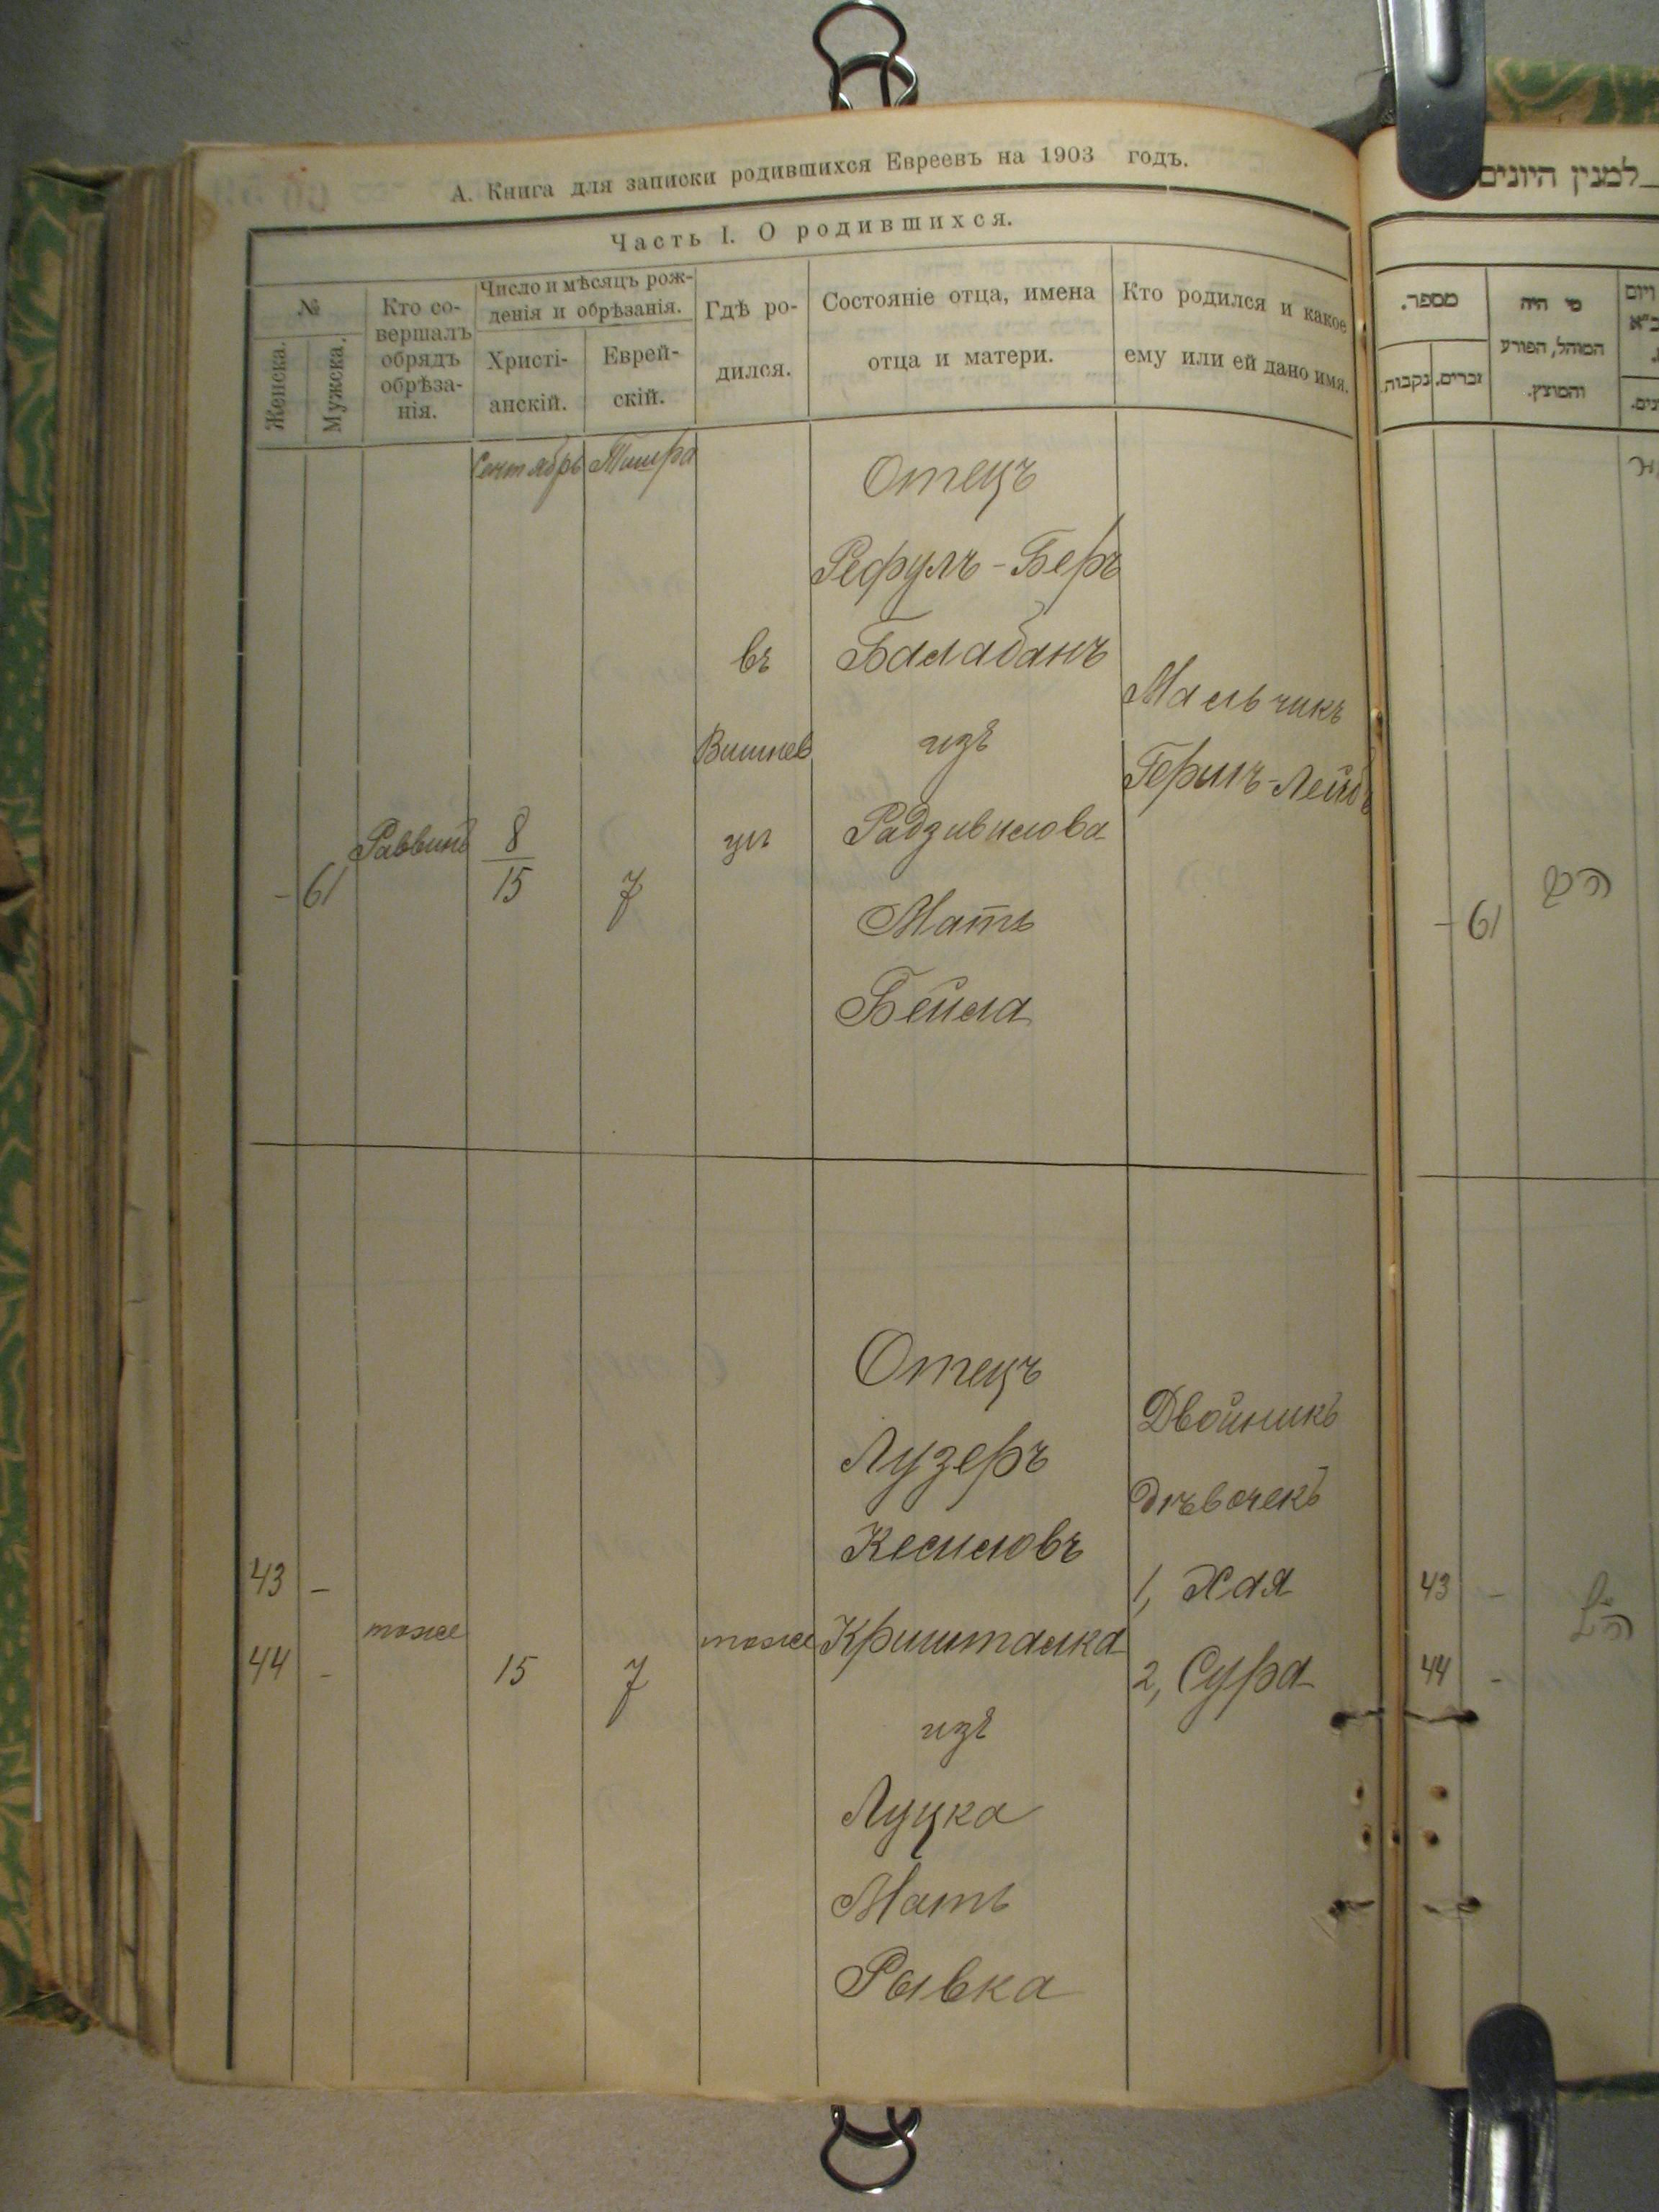 А. Книга для записки родившихся Евреевъ на 1903 годъ.
Часть I. О родившихся.
№
Женска.
Мужска.
Кто со-
вершалъ
обрядъ
обрѣза-
нія.
Число и мѣсяцъ рож-
денія и обрѣзанія.
Христі-
анскій.
Еврей-
скій.
Гдѣ ро-
дился.
Состояніе отца, имена
отца и матери.
Кто родился и какое
ему или ей дано имя.
Сентябрь Тишра
- 61
Раввинъ
8
15
7
въ
Вишнев
цѣ
Отецъ
Рефулъ-Беръ
Балабанъ
изъ
Радзивилова
Мать
Бейла
Мальчикъ
Гершъ-Лейбъ
43 -
44 -
тоже
15
7
тоже
Отецъ
Лузеръ
Кесиловъ
Кришталка
изъ
Луцка
Мать
Рывка
Двойникъ
дѣвочекъ
1, Хая
2, Сура
למנין היונים
מספר.
נקבות.
זכרים.
מי היה
המוהל, הפורע
והמוצץ.
- 61
43 -
44 -